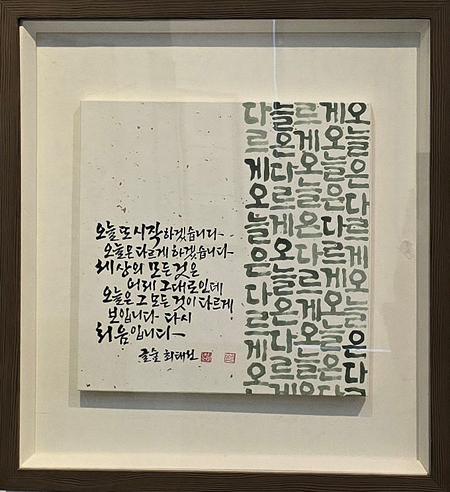 오늘 또 시작하겠습니다
오늘은 다르게 하겠습니다
세상의 모든 것은
어제 그대로인데
오늘은 그 모든 것이 다르게
보입니다 다시
처음입니다
최태
오늘은다르게오늘은다
게오늘은다르게오늘은다
르게오늘은다르게오늘은
늘은다르게오늘은다르게
다르게오늘은다르게오